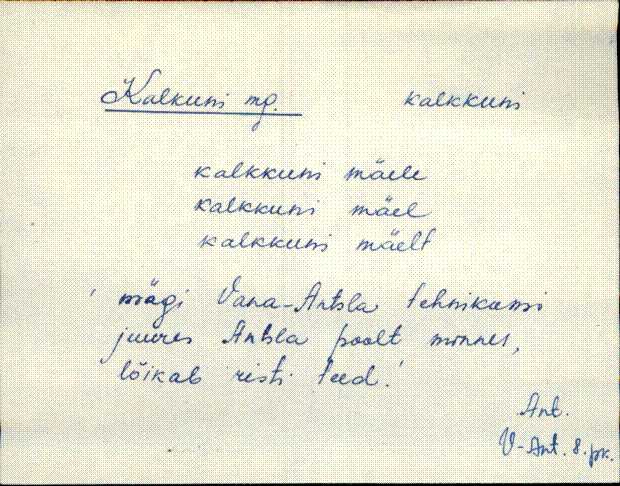 Kalkuni mg. kalkkuni
kalkkuni mäele
kalkkuni mäel
kalkkuni mäelt
' mägi Vana-Antsla tehnikumi
juures Antsla poolt minnes,
lõikab risti teed.'
Ant.
V-Ant. 8. pk.